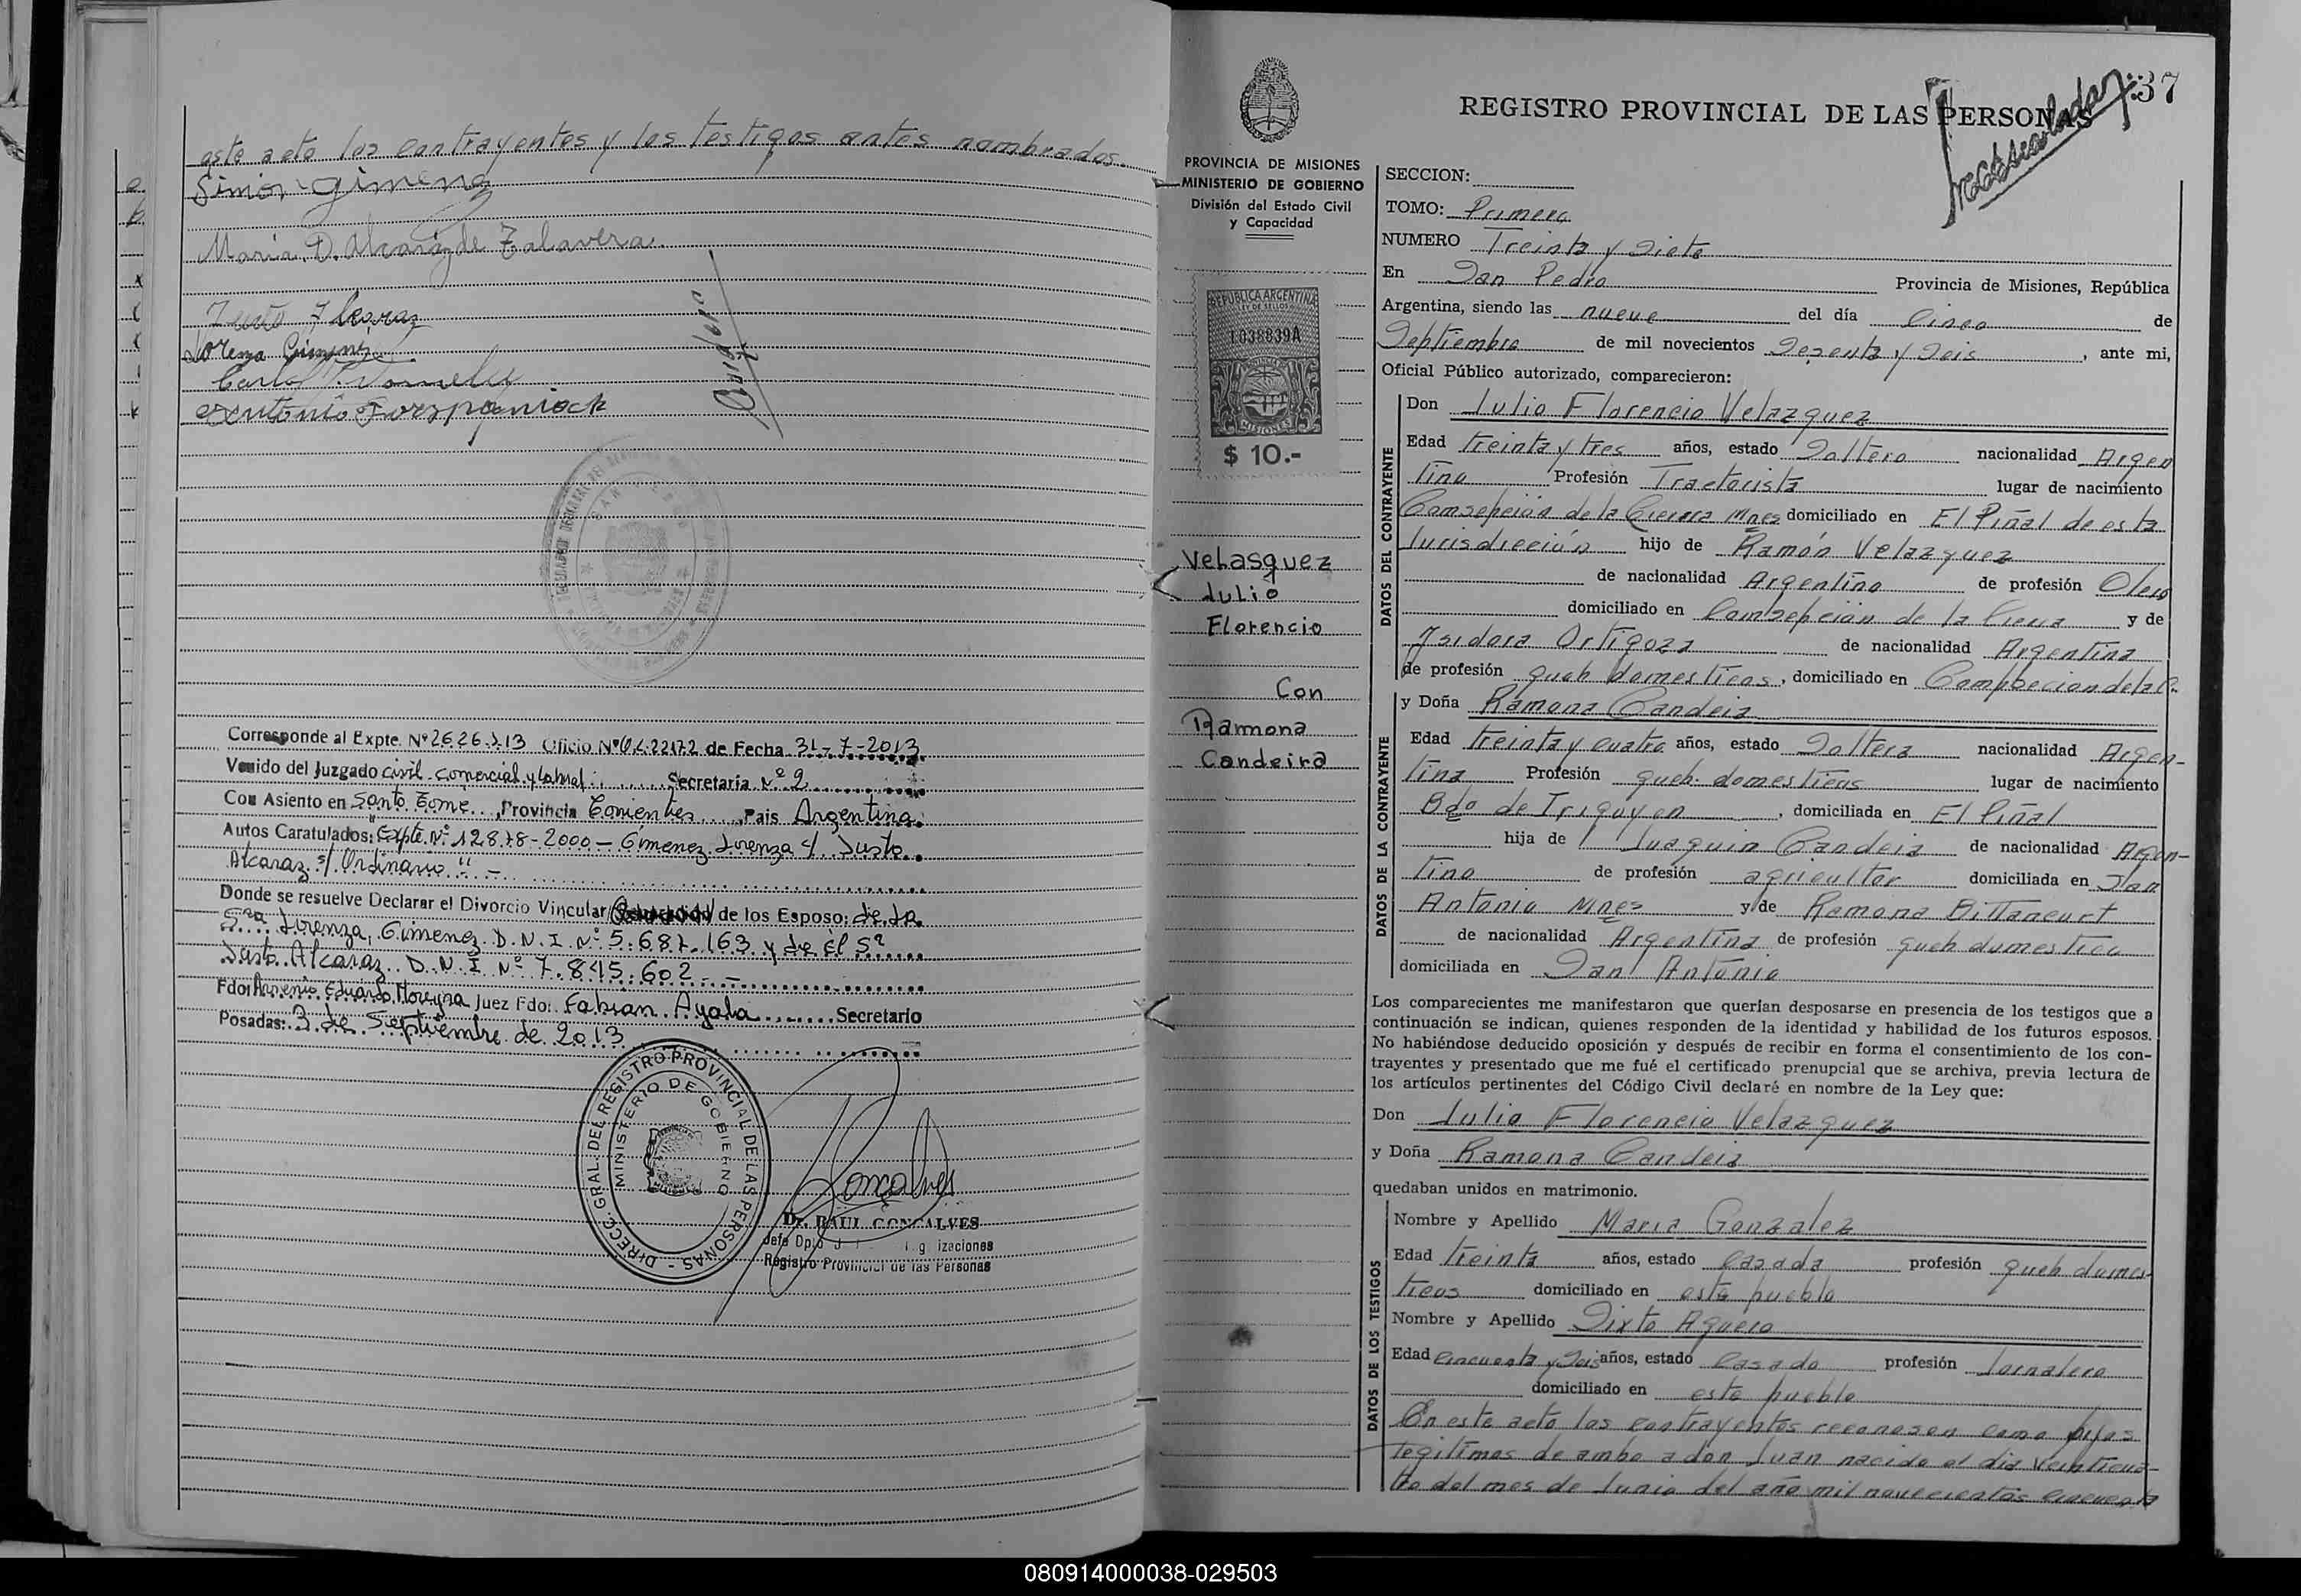 este acto los contrayentes y los testigos antes nombrados.
Simon gimenez
Maria D. Alcaraz de Talavera
Justo Alcaraz
Lorenza Gimenez
Antonio
Corresponde al Expte. Nº 2626.J.13 Oficio Nº 22172 de Fecha 31-7-2013
Venido del Juzgado civil comercial y laboral Secretaría Nº 2
Con Asiento en Santo Tome, Provincia Corrientes, Pais Argentina.
Autos Caratulados: "Expte. Nº 12.878-2000 - Gimenez Lorenza c/ Justo
Alcaraz s/ Ordinario" -
Donde se resuelve Declarar el Divorcio Vincular de los Esposo: de la
Sra Lorenza, Gimenez D.N.I Nº 5.687.163 y de El Sr
Justo Alcaraz D.N.I Nº 7.845.602 -
Fdo: Arsenio Eduardo Moreyra Juez Fdo: Fabian Ayala Secretario
Posadas: 3 de Septiembre de 2013
DIRECC. GRAL. DEL REGISTRO PROVINCIAL DE LAS PERSONAS -
MINISTERIO DE GOBIERNO
Dr. RAUL GONCALVES
Jefe Dpto
Registro Provincial de las Personas
37
REGISTRO PROVINCIAL DE LAS PERSONAS
PROVINCIA DE MISIONES
MINISTERIO DE GOBIERNO
División del Estado Civil
y Capacidad
REPUBLICA ARGENTINA
LEY DE SELLOS
1038839A
MISIONES
$ 10.-
Velasquez
Julio
Florencio
Con
Ramona
Candeira
SECCION:
TOMO: Primero
NUMERO Treinta y Siete
En San Pedro Provincia de Misiones, República
Argentina, siendo las nueve del día cinco de
Septiembre de mil novecientos Sesenta y Seis, ante mi,
Oficial Público autorizado, comparecieron:
DATOS DEL CONTRAYENTE
Don Julio Florencio Velazquez
Edad treinta y tres años, estado Soltero nacionalidad Argen
tino Profesión Tractorista lugar de nacimiento
Comsepción de la Cierra Mnes domiciliado en El Piñal de esta
Jurisdicción hijo de Ramón Velazquez
de nacionalidad Argentino de profesión Olero
domiciliado en Comsepción de la Cierra y de
Ysidora Ortigoza de nacionalidad Argentina
de profesión queh domesticos, domiciliado en Compsecion de la C.
DATOS DE LA CONTRAYENTE
y Doña Ramona Candeia
Edad treinta y cuatro años, estado Soltera nacionalidad Argen-
tina Profesión queh. domesticos lugar de nacimiento
Bdo de Irigoyen, domiciliada en El Piñal
hija de Juaquin Candeia de nacionalidad Argen-
tino de profesión agricultor domiciliada en San
Antonio Mnes y de Ramona Bittancurt
de nacionalidad Argentina de profesión queh domestico
domiciliada en San Antonio
Los comparecientes me manifestaron que querían desposarse en presencia de los testigos que a
continuación se indican, quienes responden de la identidad y habilidad de los futuros esposos.
No habiéndose deducido oposición y después de recibir en forma el consentimiento de los con-
trayentes y presentado que me fué el certificado prenupcial que se archiva, previa lectura de
los artículos pertinentes del Código Civil declaré en nombre de la Ley que:
Don Julio Florencio Velazquez
y Doña Ramona Candeia
quedaban unidos en matrimonio.
DATOS DE LOS TESTIGOS
Nombre y Apellido Maria Gonzalez
Edad treinta años, estado casada profesión queh domes-
ticos domiciliado en este pueblo
Nombre y Apellido Sixto Aguero
Edad cincuenta y Seis años, estado casado profesión Jornalero
domiciliado en este pueblo
En este acto los contrayentes reconosen como hijos
legitimos de ambo a don Juan nacido el dia veinticua-
tro del mes de Junio del año mil novecientos cincuenta
080914000038-029503